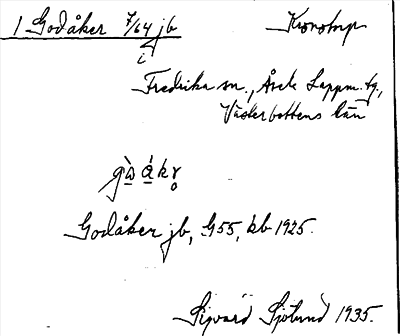 1 Godåker 7/64 jb Kronotorp
i
Fredrika sn., Åsele Lappm. tg.,
Västerbottens län
Godåker jb, G55, kb 1925.
Sigvard Sjölund 1935.